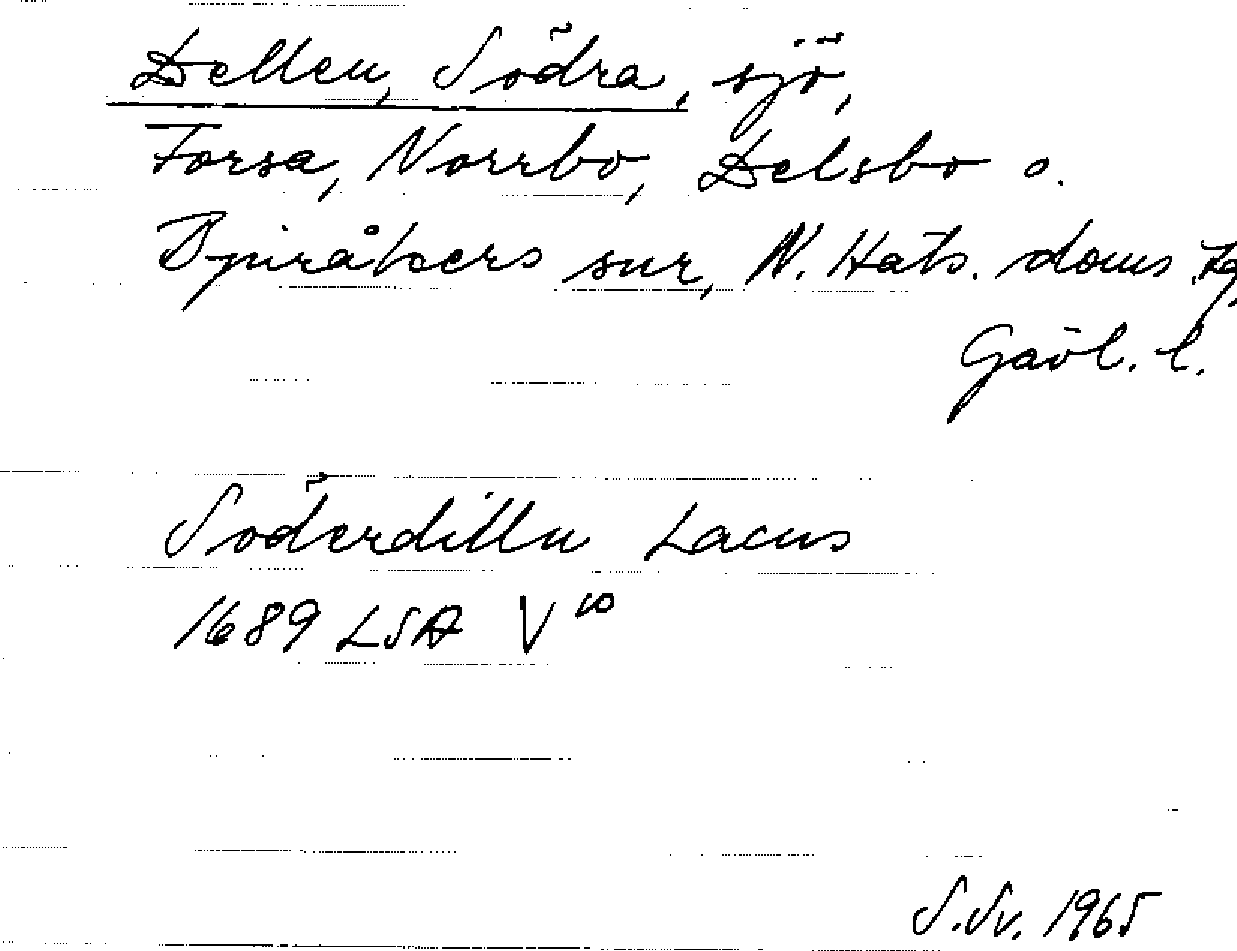 Dellen, Södra, sjö,
Forsa, Norrbo, Delsbo o.
Bjuråkers snr, N. Häls. doms.
Gävl. l.
Söderdilln Lacus
1689 LSA V¹⁰
S.Sv. 1965